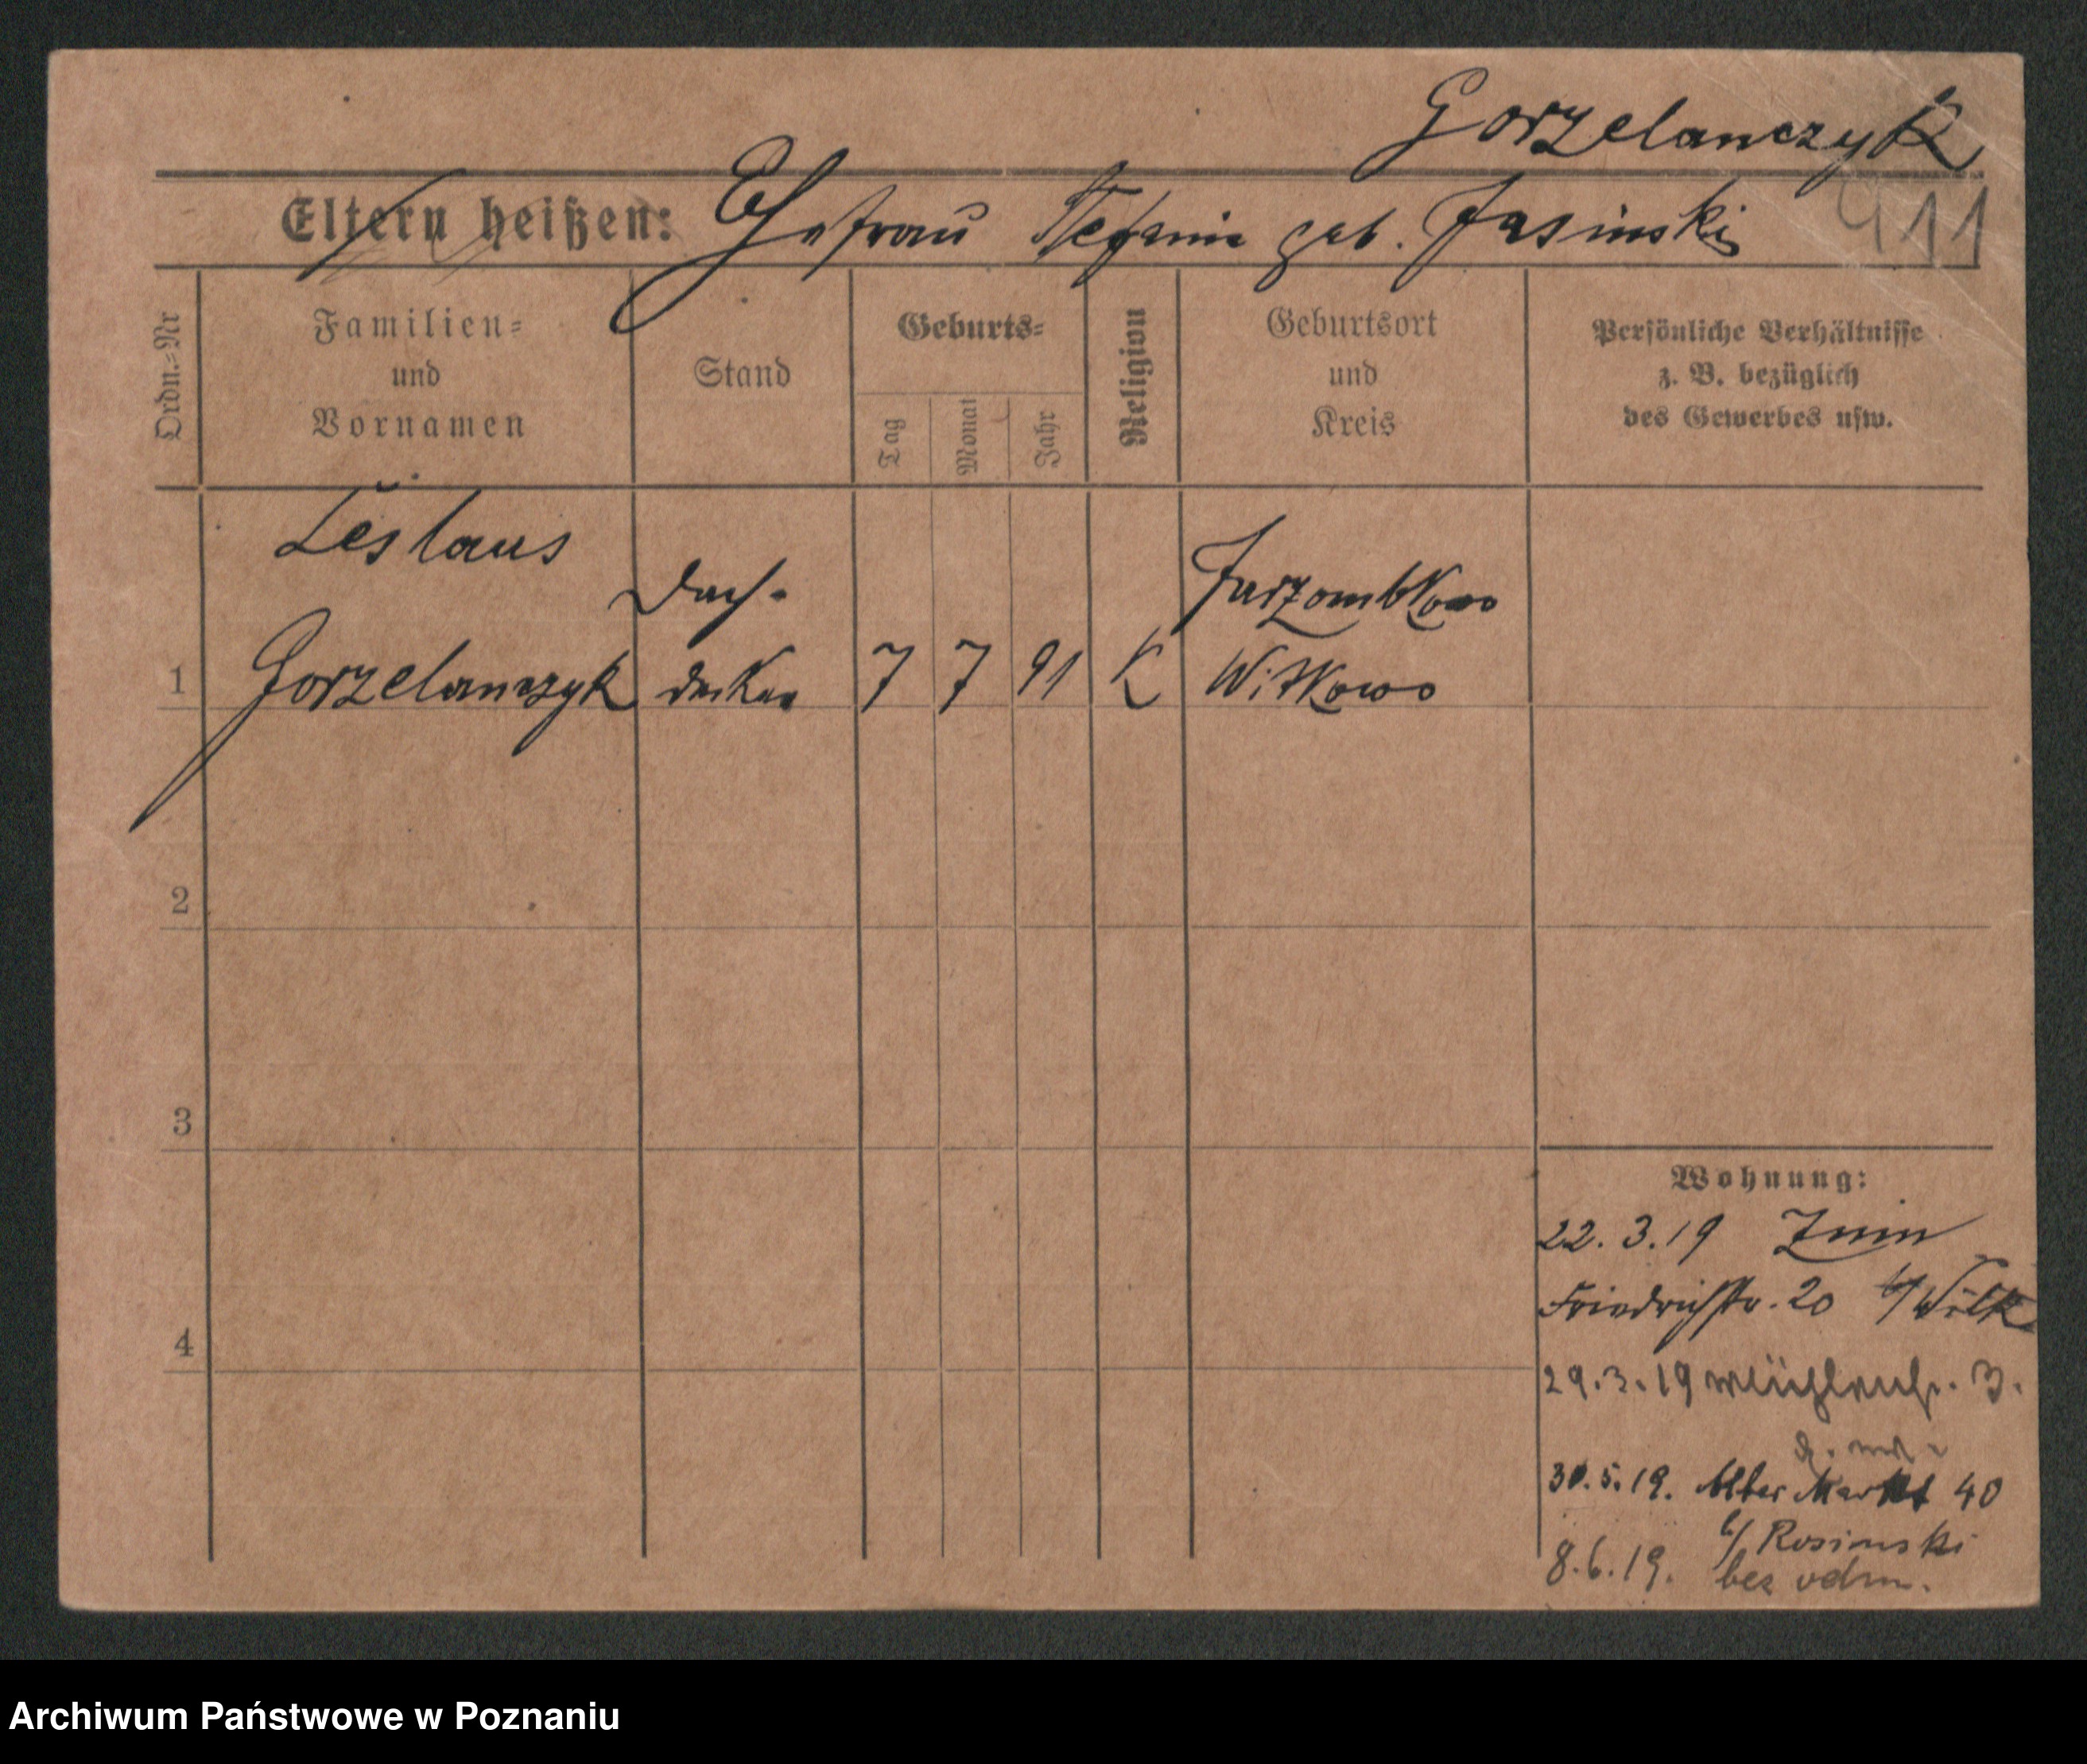 Gorzelanczyk
Eltern heißen: Ehefrau Stefanie geb. Jasinski 911
Ordn.=Nr
Familien=
und
Vornamen
Stand
Geburts=
Tag
Monat
Jahr
Religion
Geburtsort
und
Kreis
Persönliche Verhältnisse
z. B. bezüglich
des Gewerbes usw.
Leslaus
Dach-
Jarzombkowo
1 Gorzelanczyk decker 7 7 91 K Witkowo
2
3
4
Wohnung:
22. 3. 19 Znin
Friedrichstr. 20 b/ Wilk
29. 3. 19 3.
30. 5. 19. Alter Markt 40
b/ Rosinski
8. 6. 19. bez odm.
Archiwum Państwowe w Poznaniu